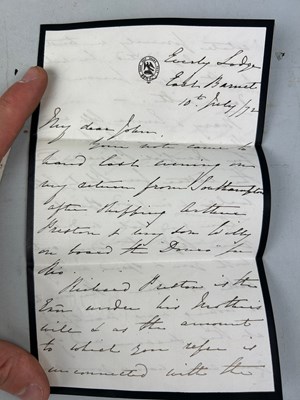 Everly Lodge
East Barnet
10th July/72
My dear John,
Your note came to
hand last evening on
my return from Southampton
after shipping Arthur
Preston & my son Willy
on board the for
Rio
Richard Preston is the
Exor under his Mother's
will & as the amount
to which you refer is
unconnected with the